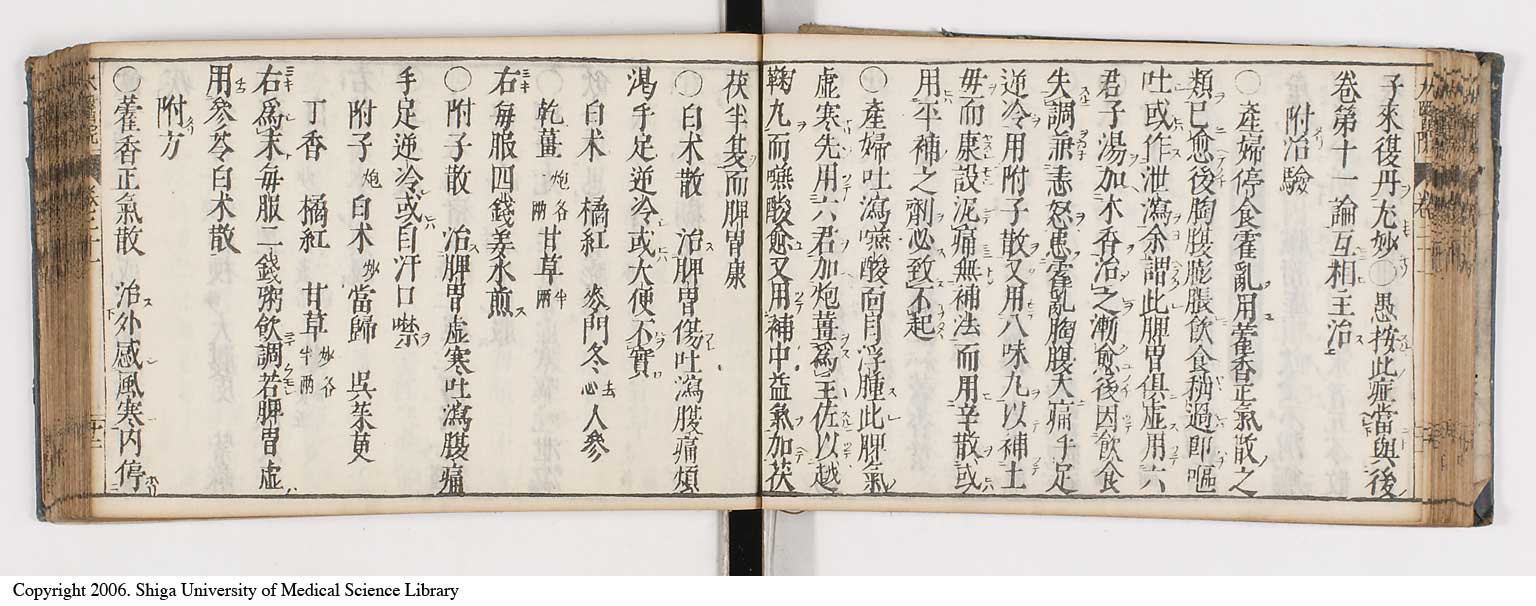 子來復丹尤妙○愚按此症當與後
卷第十一論互相主治
附治驗
○產婦停食霍亂用藿香正氣散之
類已愈後胸腹膨脹飲食稍過即嘔
吐或作泄瀉余謂此脾胃俱虛用六
君子湯加木香治之漸愈後因飲食
失調兼恚怒患霍亂胸腹大痛手足
逆冷用附子散又用八味丸以補土
母而康設泥痛無補法而用辛散或
用平補之劑必致不起
○產婦吐瀉嚥酸面目浮腫此脾氣
虛寒先用六君加炮薑爲主佐以越
鞠丸而嚥酸愈又用補中益氣加茯
苓半夏而脾胃康
○白朮散 治脾胃傷吐瀉腹痛煩
渴手足逆冷或大便不實
白朮 橘紅 麥門冬去心 人參
乾薑炮各一兩 甘草半兩
右每服四錢姜水煎
○附子散 治脾胃虛寒吐瀉腹痛
手足逆冷或自汗口噤
附子炮 白朮炒 當歸 吳茱萸
丁香 橘紅 甘草炒各半兩
右爲末每服二錢粥飲調若脾胃虛
用參苓白朮散
附方
○藿香正氣散 治外感風寒内停
Copyright 2006. Shiga University of Medical Science Library